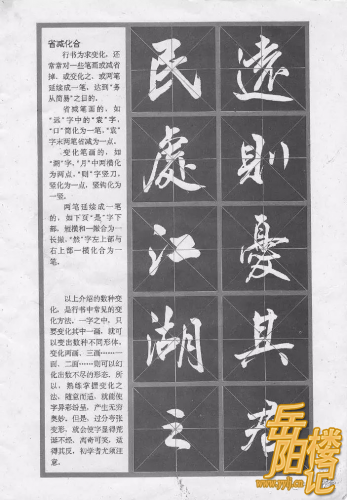 省减化合
行书为求变化，还
常常对一些笔画或减省
掉，或变化之，或两笔
延续成一笔，达到“务
从简易”之目的。
省减笔画的，如
“远”字中的“袁”字，
“口”简化为一笔，“袁”
字末两笔省减为一点。
变化笔画的，如
“湖”字，“月”中两横化
为两点，“则”字竖刀，
竖化为一点，竖钩化为
一竖。
两笔延续成一笔
的，如下页“是”字下
部，短横和一撇合为一
长撇，“然”字左上部与
右上部一横化合为一
笔。
以上介绍的数种变
化，是行书中常见的变
化方法。一字之中，只
要变化其中一画，就可
以变出数种不同形体，
变化两画、三画……一
面、二面……则可以幻
化出数不尽的形态。所
以，熟练掌握变化之
法，随意而适，就能使
字异彩纷呈，产生无穷
奥妙。但是，过分夸张
变形，就会使字显得荒
诞不经，离奇可笑，适
得其反，初学者尤须注
意。
遠則憂其君
民處江湖之
岳阳楼记
www.yylj.cn